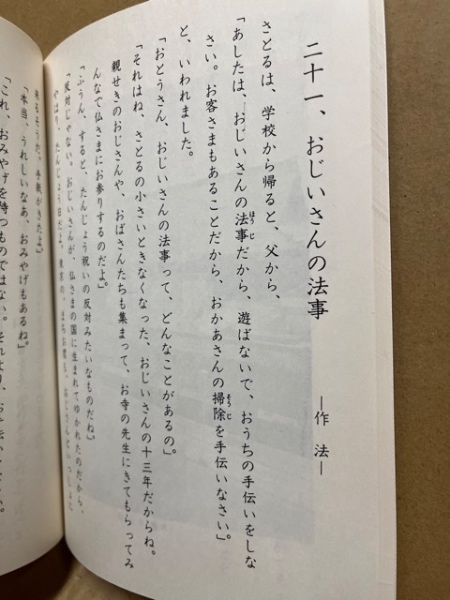 二十一、おじいさんの法事
―作法―
さとるは、学校から帰ると、父から、
「あしたは、おじいさんの法事だから、遊ばないで、おうちの手伝いをしな
さい。お客さまもあることだから、おかあさんの掃除を手伝いなさい。」
と、いわれました。
「おとうさん、おじいさんの法事って、どんなことがあるの」。
「それはね、さとるの小さいときなくなった、おじいさんの十三年だからね。
親せきのおじさんや、おばさんたちも集まって、お寺の先生にきてもらってみ
んなで仏さまにお参りするのだよ」。
「ふうん、すると、たんじょう祝いの反対みたいなものだね」
「反対じゃない。おじいさんが、仏さまの国に生まれてゆかれたのだから、
やはり、たんじょう日だよ。
来るそうだ。手紙がきたよ」
「本当、うれしいなあ、おみやげもあるね」
「これ、おみやげを待つものではない。それより、お手伝い